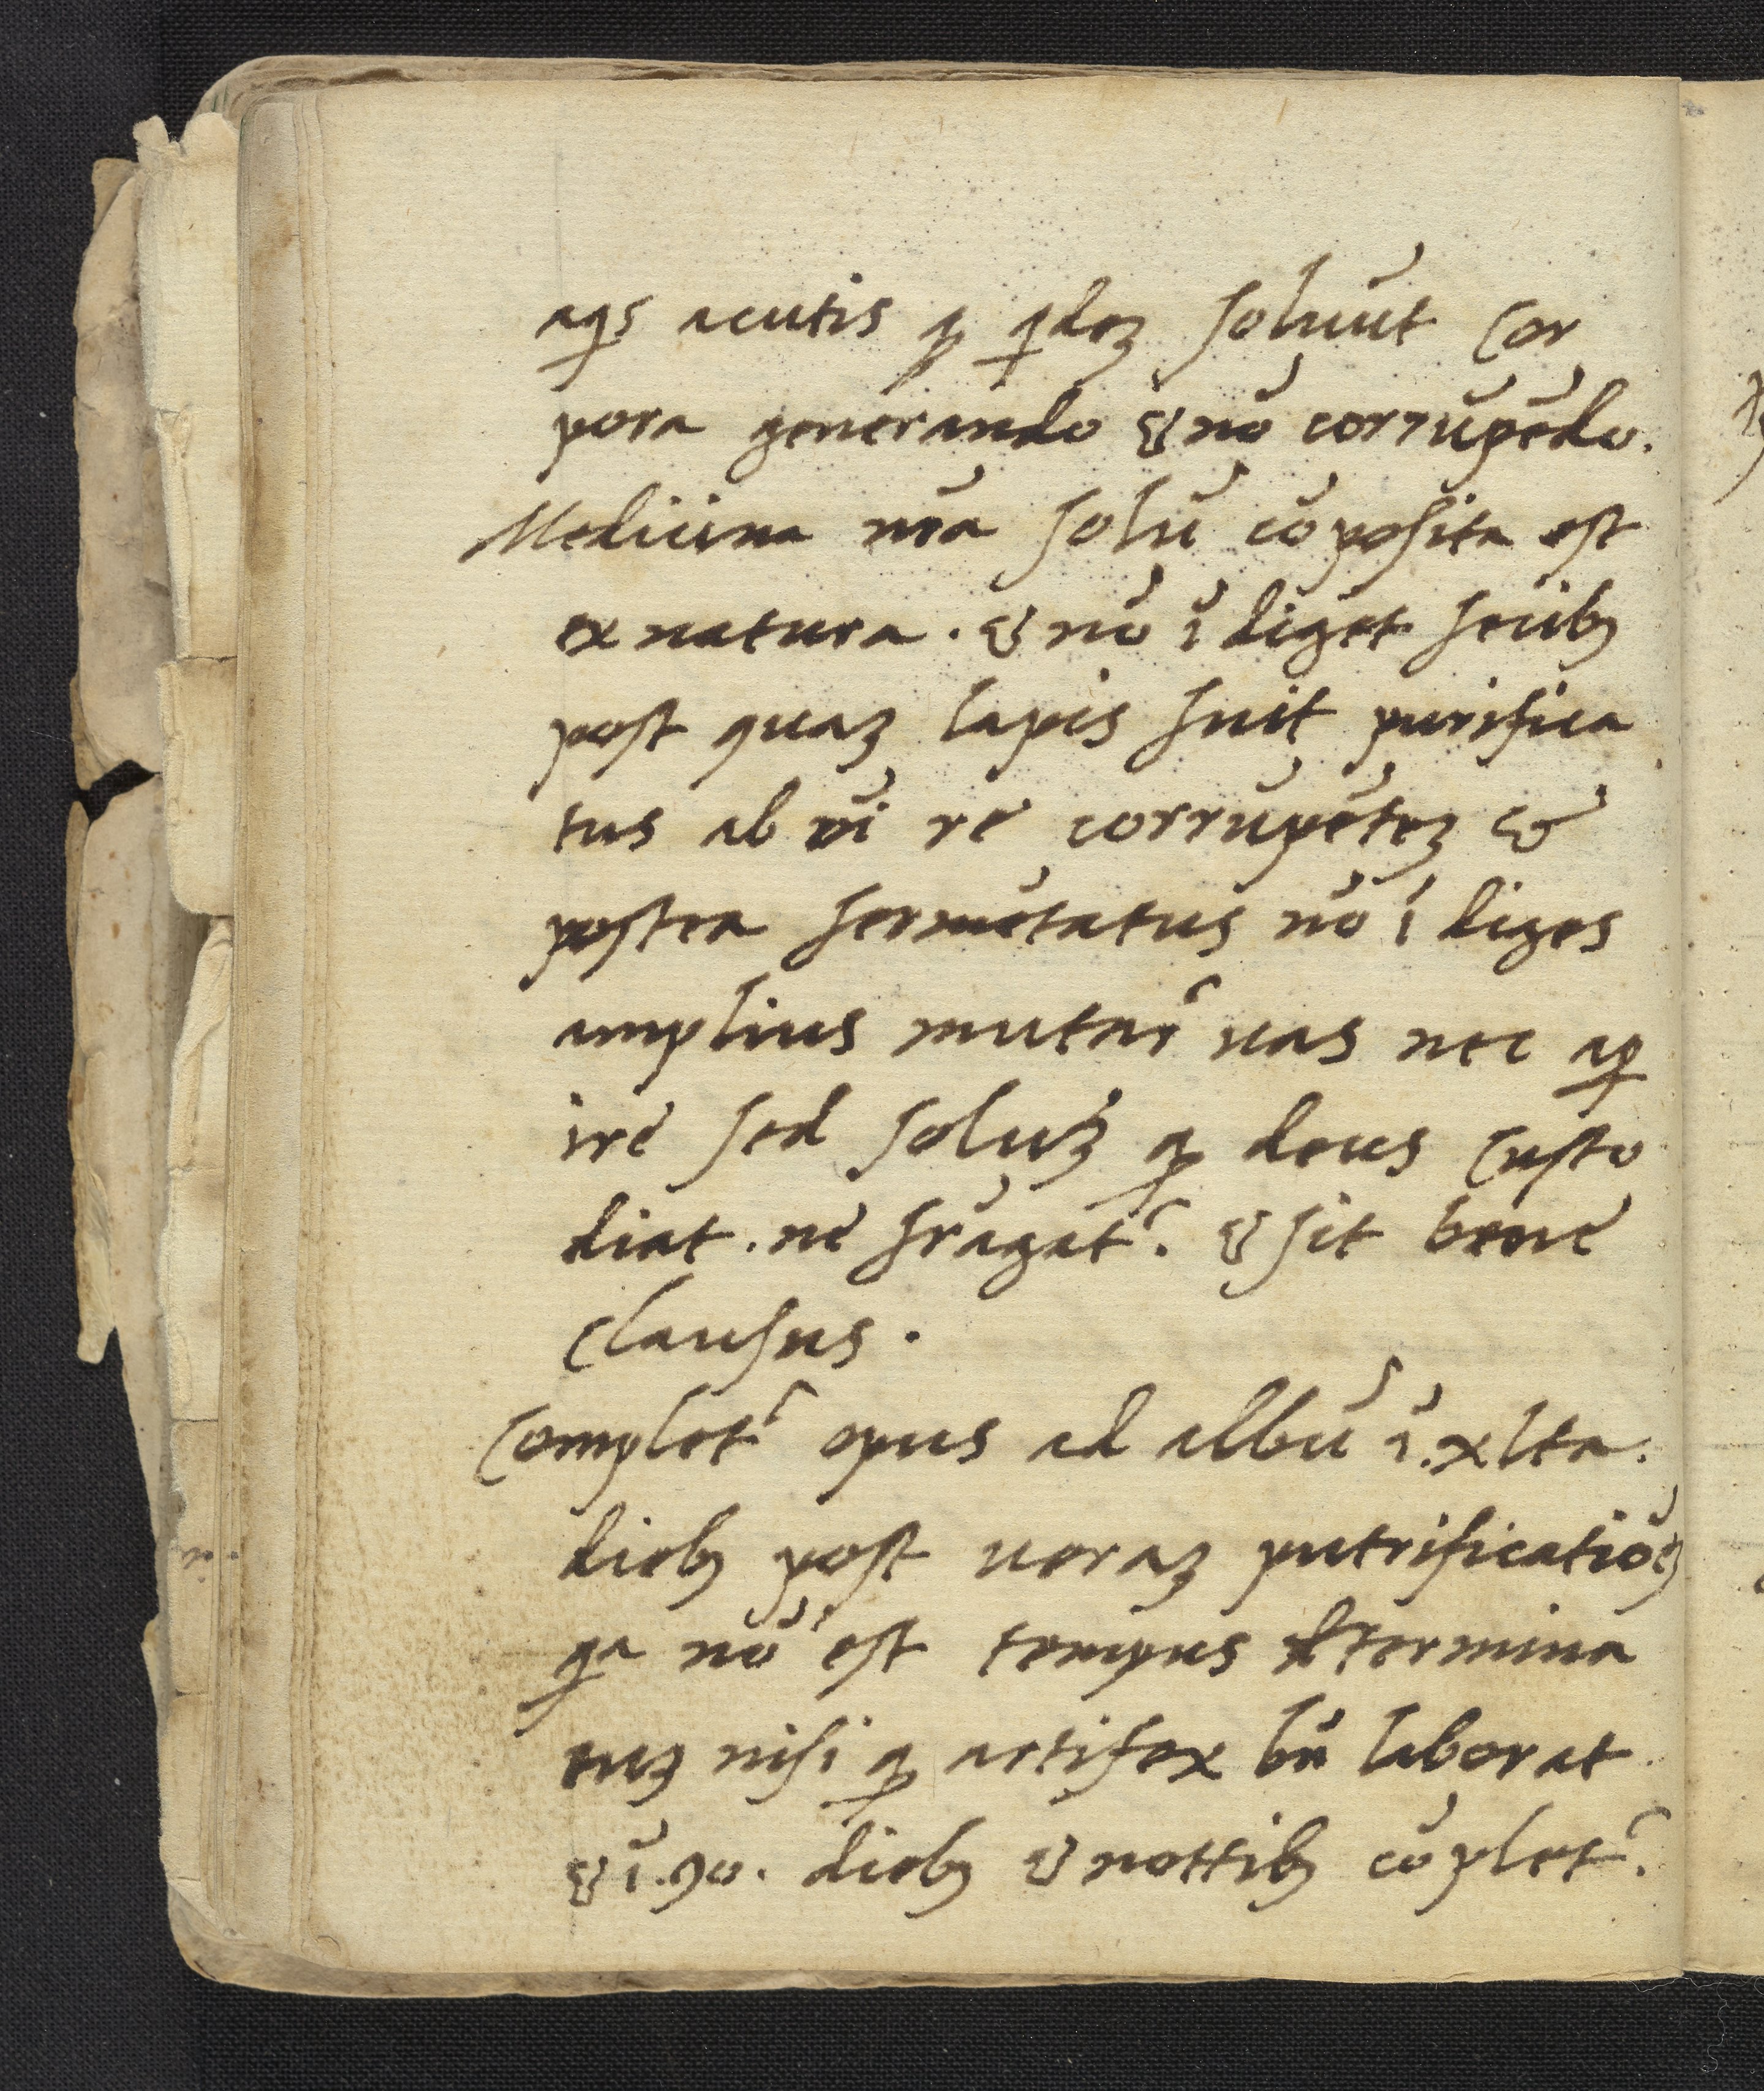 aqs acutis ꝙ qdeꝫ soluūt Cor
pora generando & nō corrūpēdo.
Medicina nr̄a solū cōposita est
ex natura . & nō ī diget fecibꝫ
post quaꝫ lapis fuit purifica
tus ab oī re corrūpēteꝫ &
postea fermētatus nō ī diges
amplius mutar̄ uas nec ap
ire sed soluꝫ ꝙ deus Custo
diat . ne frāgat᷑ . & sit bene
Clausus .
Complet᷑ opus ad albū ī . xlta .
diebꝫ post ueraꝫ putrificatiōeꝫ
qa nō est tempus determina
tuꝫ nisi ꝙ artifex bn̄ laborat
& ī . 90 . diebꝫ & nottibꝫ cōplet᷑ .